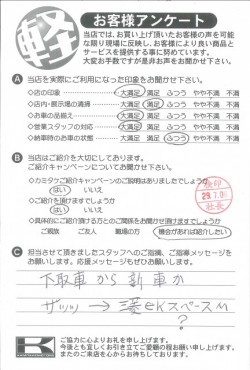 軽
お客様アンケート
当店では、お買い上げ頂いたお客様の声を可能
な限り現場に反映し、お客様により良い商品と
サービスを提供する事に努めています。
大変お手数ですが是非お声をお聞かせ下さい。
A 当店を実際にご利用になった印象をお聞かせ下さい。
◇店の印象 大満足 満足 ふつう やや不満 不満
◇店内・展示場の清掃 大満足 満足 ふつう やや不満 不満
◇お車の品揃え 大満足 満足 ふつう やや不満 不満
◇営業スタッフの対応 大満足 満足 ふつう やや不満 不満
◇納車時のお車の状態 大満足 満足 ふつう やや不満 不満
B 当店はご紹介を大切にしております。
ご紹介キャンペーンについてお聞かせ下さい。
◇カミタケご紹介キャンペーンのご説明はありましたでしょうか
はい いいえ
◇ご紹介を頂けますでしょうか
はい いいえ
◇具体的にご紹介頂ける方との関係をお聞かせ頂けますでしょうか
ご親族 ご友人 職場の方 機会があれば紹介したい
社長
C 担当させて頂きましたスタッフへのご指摘、ご指導メッセージを
お願いします。応援メッセージもぜひお願いします。
下取車から新車か
→ 三菱eKスペースM
?
ご協力に心よりお礼を申し上げます。
今後とも宜しくお引き立てご愛顧の程お願い申し上げます。
またのご来店を心からお待ちしております。